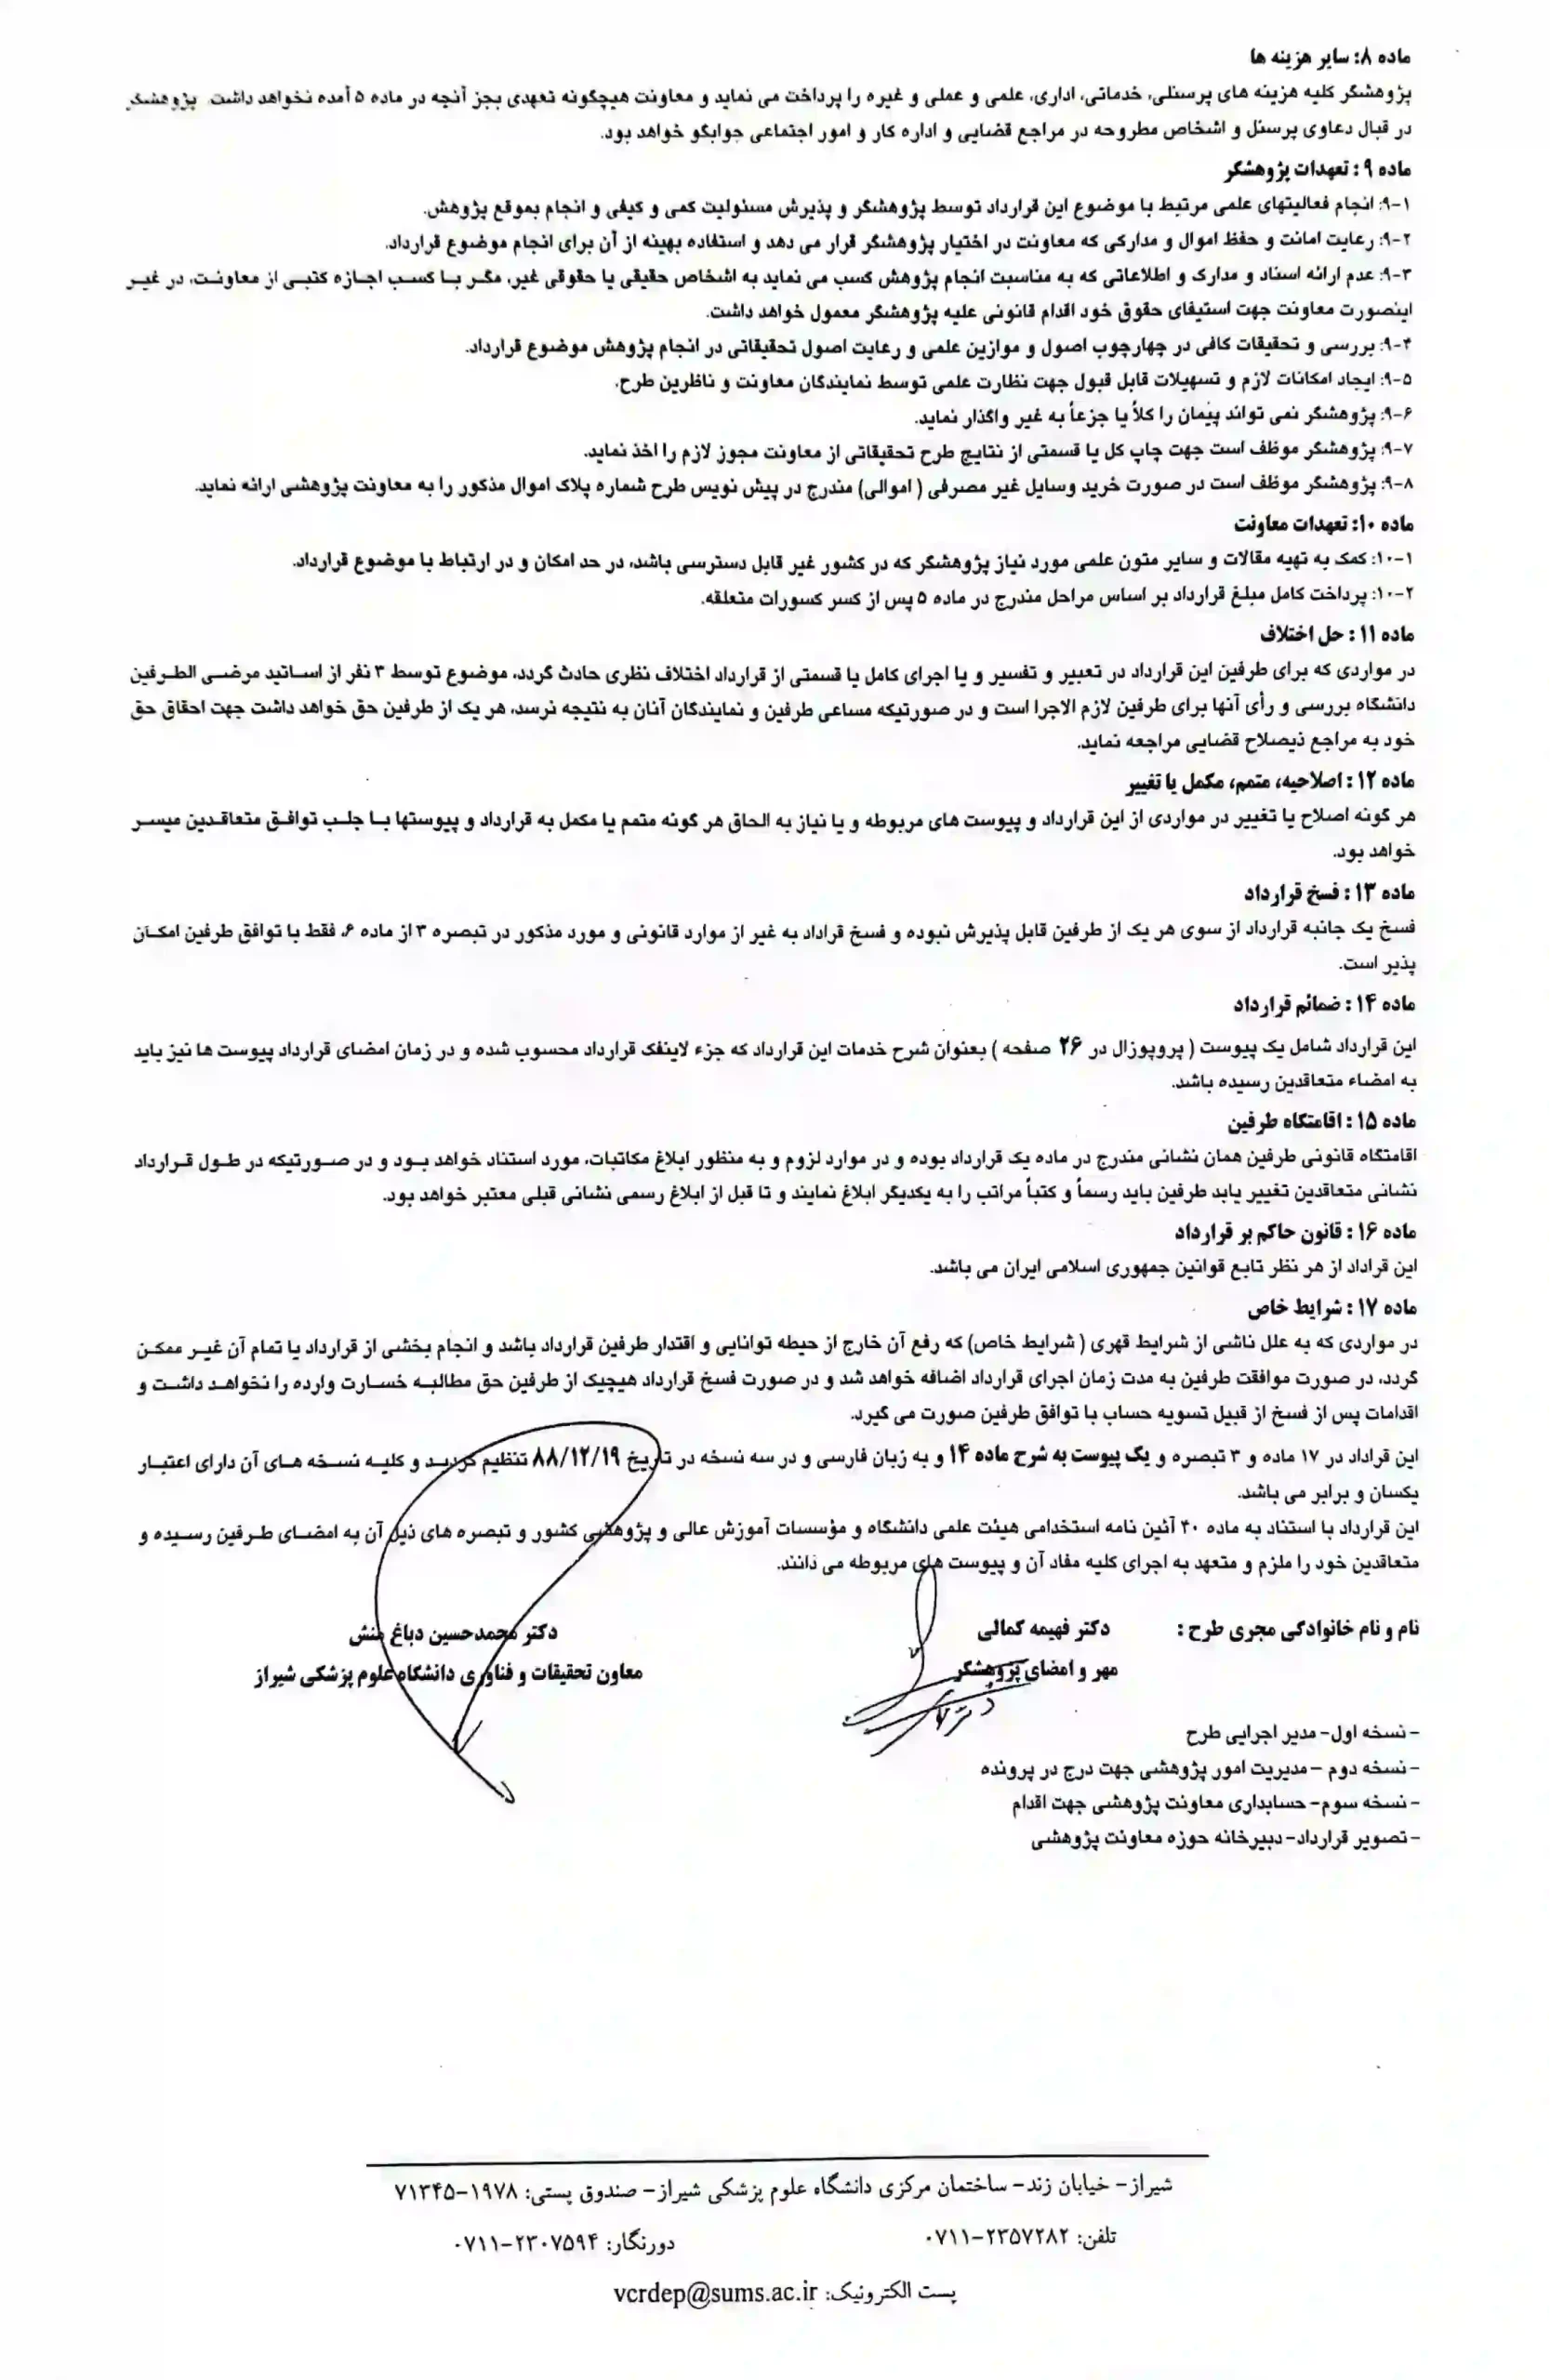 ماده ۸: سایر هزینه ها
پژوهشگر کلیه هزینه های پرسنلی، خدماتی، اداری، علمی و عملی و غیره را پرداخت می نماید و معاونت هیچگونه تعهدی بجز آنچه در ماده ۵ آمده نخواهد داشت پژوهشگر
در قبال دعاوی پرسنل و اشخاص مطروحه در مراجع قضایی و اداره کار و امور اجتماعی جوابگو خواهد بود.
ماده ۹ : تعهدات پژوهشگر
۹-۱: انجام فعالیتهای علمی مرتبط با موضوع این قرارداد توسط پژوهشگر و پذیرش مسئولیت کمی و کیفی و انجام بموقع پژوهش.
۹-۲: رعایت امانت و حفظ اموال و مدارکی که معاونت در اختیار پژوهشگر قرار می دهد و استفاده بهینه از آن برای انجام موضوع قرارداد.
۹-۳: عدم ارائه اسناد و مدارک و اطلاعاتی که به مناسبت انجام پژوهش کسب می نماید به اشخاص حقیقی یا حقوقی غیر، مگر با کسب اجازه کتبی از معاونت، در غیر
اینصورت معاونت جهت استیفای حقوق خود اقدام قانونی علیه پژوهشگر معمول خواهد داشت.
۹-۴: بررسی و تحقیقات کافی در چهارچوب اصول و موازین علمی و رعایت اصول تحقیقاتی در انجام پژوهش موضوع قرارداد.
۹-۵: ایجاد امکانات لازم و تسهیلات قابل قبول جهت نظارت علمی توسط نمایندگان معاونت و ناظرین طرح.
۹-۶: پژوهشگر نمی تواند پیمان را کلاً یا جزعاً به غیر واگذار نماید.
۹-۷: پژوهشگر موظف است جهت چاپ کل یا قسمتی از نتایج طرح تحقیقاتی از معاونت مجوز لازم را اخذ نماید.
۹-۸: پژوهشگر موظف است در صورت خرید وسایل غیر مصرفی ( اموالی) مندرج در پیش نویس طرح شماره پلاک اموال مذکور را به معاونت پژوهشی ارائه نماید.
ماده ۱۰: تعهدات معاونت
۱۰-۱: کمک به تهیه مقالات و سایر متون علمی مورد نیاز پژوهشگر که در کشور غیر قابل دسترسی باشد، در حد امکان و در ارتباط با موضوع قرارداد.
۱۰-۲: پرداخت کامل مبلغ قرارداد بر اساس مراحل مندرج در ماده ۵ پس از کسر کسورات متعلقه.
ماده ۱۱ : حل اختلاف
در مواردی که برای طرفین این قرارداد در تعبیر و تفسیر و یا اجرای کامل یا قسمتی از قرارداد اختلاف نظری حادث گردد، موضوع توسط ۳ نفر از اساتید مرضی الطرفین
دانشگاه بررسی و رأی آنها برای طرفین لازم الاجرا است و در صورتیکه مساعی طرفین و نمایندگان آنان به نتیجه نرسد، هر یک از طرفین حق خواهد داشت جهت احقاق حق
خود به مراجع ذیصلاح قضایی مراجعه نماید.
ماده ۱۲ : اصلاحیه، متمم، مکمل یا تغییر
هر گونه اصلاح یا تغییر در مواردی از این قرارداد و پیوست های مربوطه و یا نیاز به الحاق هر گونه متمم یا مکمل به قرارداد و پیوستها با جلب توافق متعاقدین میسر
خواهد بود.
ماده ۱۳ : فسخ قرارداد
فسخ یک جانبه قرارداد از سوی هر یک از طرفین قابل پذیرش نبوده و فسخ قراداد به غیر از موارد قانونی و مورد مذکور در تبصره ۳ از ماده ۶، فقط با توافق طرفین امکان
پذیر است.
ماده ۱۴ : ضمائم قرارداد
این قرارداد شامل یک پیوست ( پروپوزال در ۲۶ صفحه ) بعنوان شرح خدمات این قرارداد که جزء لاینفک قرارداد محسوب شده و در زمان امضای قرارداد پیوست ها نیز باید
به امضاء متعاقدین رسیده باشد.
ماده ۱۵ : اقامتگاه طرفین
اقامتگاه قانونی طرفین همان نشانی مندرج در ماده یک قرارداد بوده و در موارد لزوم و به منظور ابلاغ مکاتبات، مورد استناد خواهد بود و در صورتیکه در طول قرارداد
نشانی متعاقدین تغییر یابد طرفین باید رسماً و کتباً مراتب را به یکدیگر ابلاغ نمایند و تا قبل از ابلاغ رسمی نشانی قبلی معتبر خواهد بود.
ماده ۱۶ : قانون حاکم بر قرارداد
این قراداد از هر نظر تابع قوانین جمهوری اسلامی ایران می باشد.
ماده ۱۷ : شرایط خاص
در مواردی که به علل ناشی از شرایط قهری ( شرایط خاص) که رفع آن خارج از حیطه توانایی و اقتدار طرفین قرارداد باشد و انجام بخشی از قرارداد یا تمام آن غیر ممکن
گردد، در صورت موافقت طرفین به مدت زمان اجرای قرارداد اضافه خواهد شد و در صورت فسخ قرارداد هیچیک از طرفین حق مطالبه خسارت وارده را نخواهد داشت و
اقدامات پس از فسخ از قبیل تسویه حساب با توافق طرفین صورت می گیرد.
این قراداد در ۱۷ ماده و ۳ تبصره و یک پیوست به شرح ماده ۱۴ و به زبان فارسی و در سه نسخه در تاریخ ۸۸/۱۲/۱۹ تنظیم گردید و کلیه نسخه های آن دارای اعتبار
یکسان و برابر می باشد.
این قرارداد با استناد به ماده ۴۰ آئین نامه استخدامی هیئت علمی دانشگاه و مؤسسات آموزش عالی و پژوهشی کشور و تبصره های ذیل آن به امضای طرفین رسیده و
متعاقدین خود را ملزم و متعهد به اجرای کلیه مفاد آن و پیوست های مربوطه می دانند.
نام و نام خانوادگی مجری طرح : دکتر فهیمه کمالی دکتر محمدحسین دباغ منش
مهر و امضای پژوهشگر معاون تحقیقات و فناوری دانشگاه علوم پزشکی شیراز
- نسخه اول- مدیر اجرایی طرح
- نسخه دوم –مدیریت امور پژوهشی جهت درج در پرونده
- نسخه سوم- حسابداری معاونت پژوهشی جهت اقدام
- تصویر قرارداد- دبیرخانه حوزه معاونت پژوهشی
شیراز- خیابان زند- ساختمان مرکزی دانشگاه علوم پزشکی شیراز- صندوق پستی: ۱۹۷۸-۷۱۳۴۵
تلفن: ۲۳۵۷۲۸۲-۰۷۱۱ دورنگار: ۲۳۰۷۵۹۴-۰۷۱۱
پست الکترونیک: vcrdep@sums.ac.ir